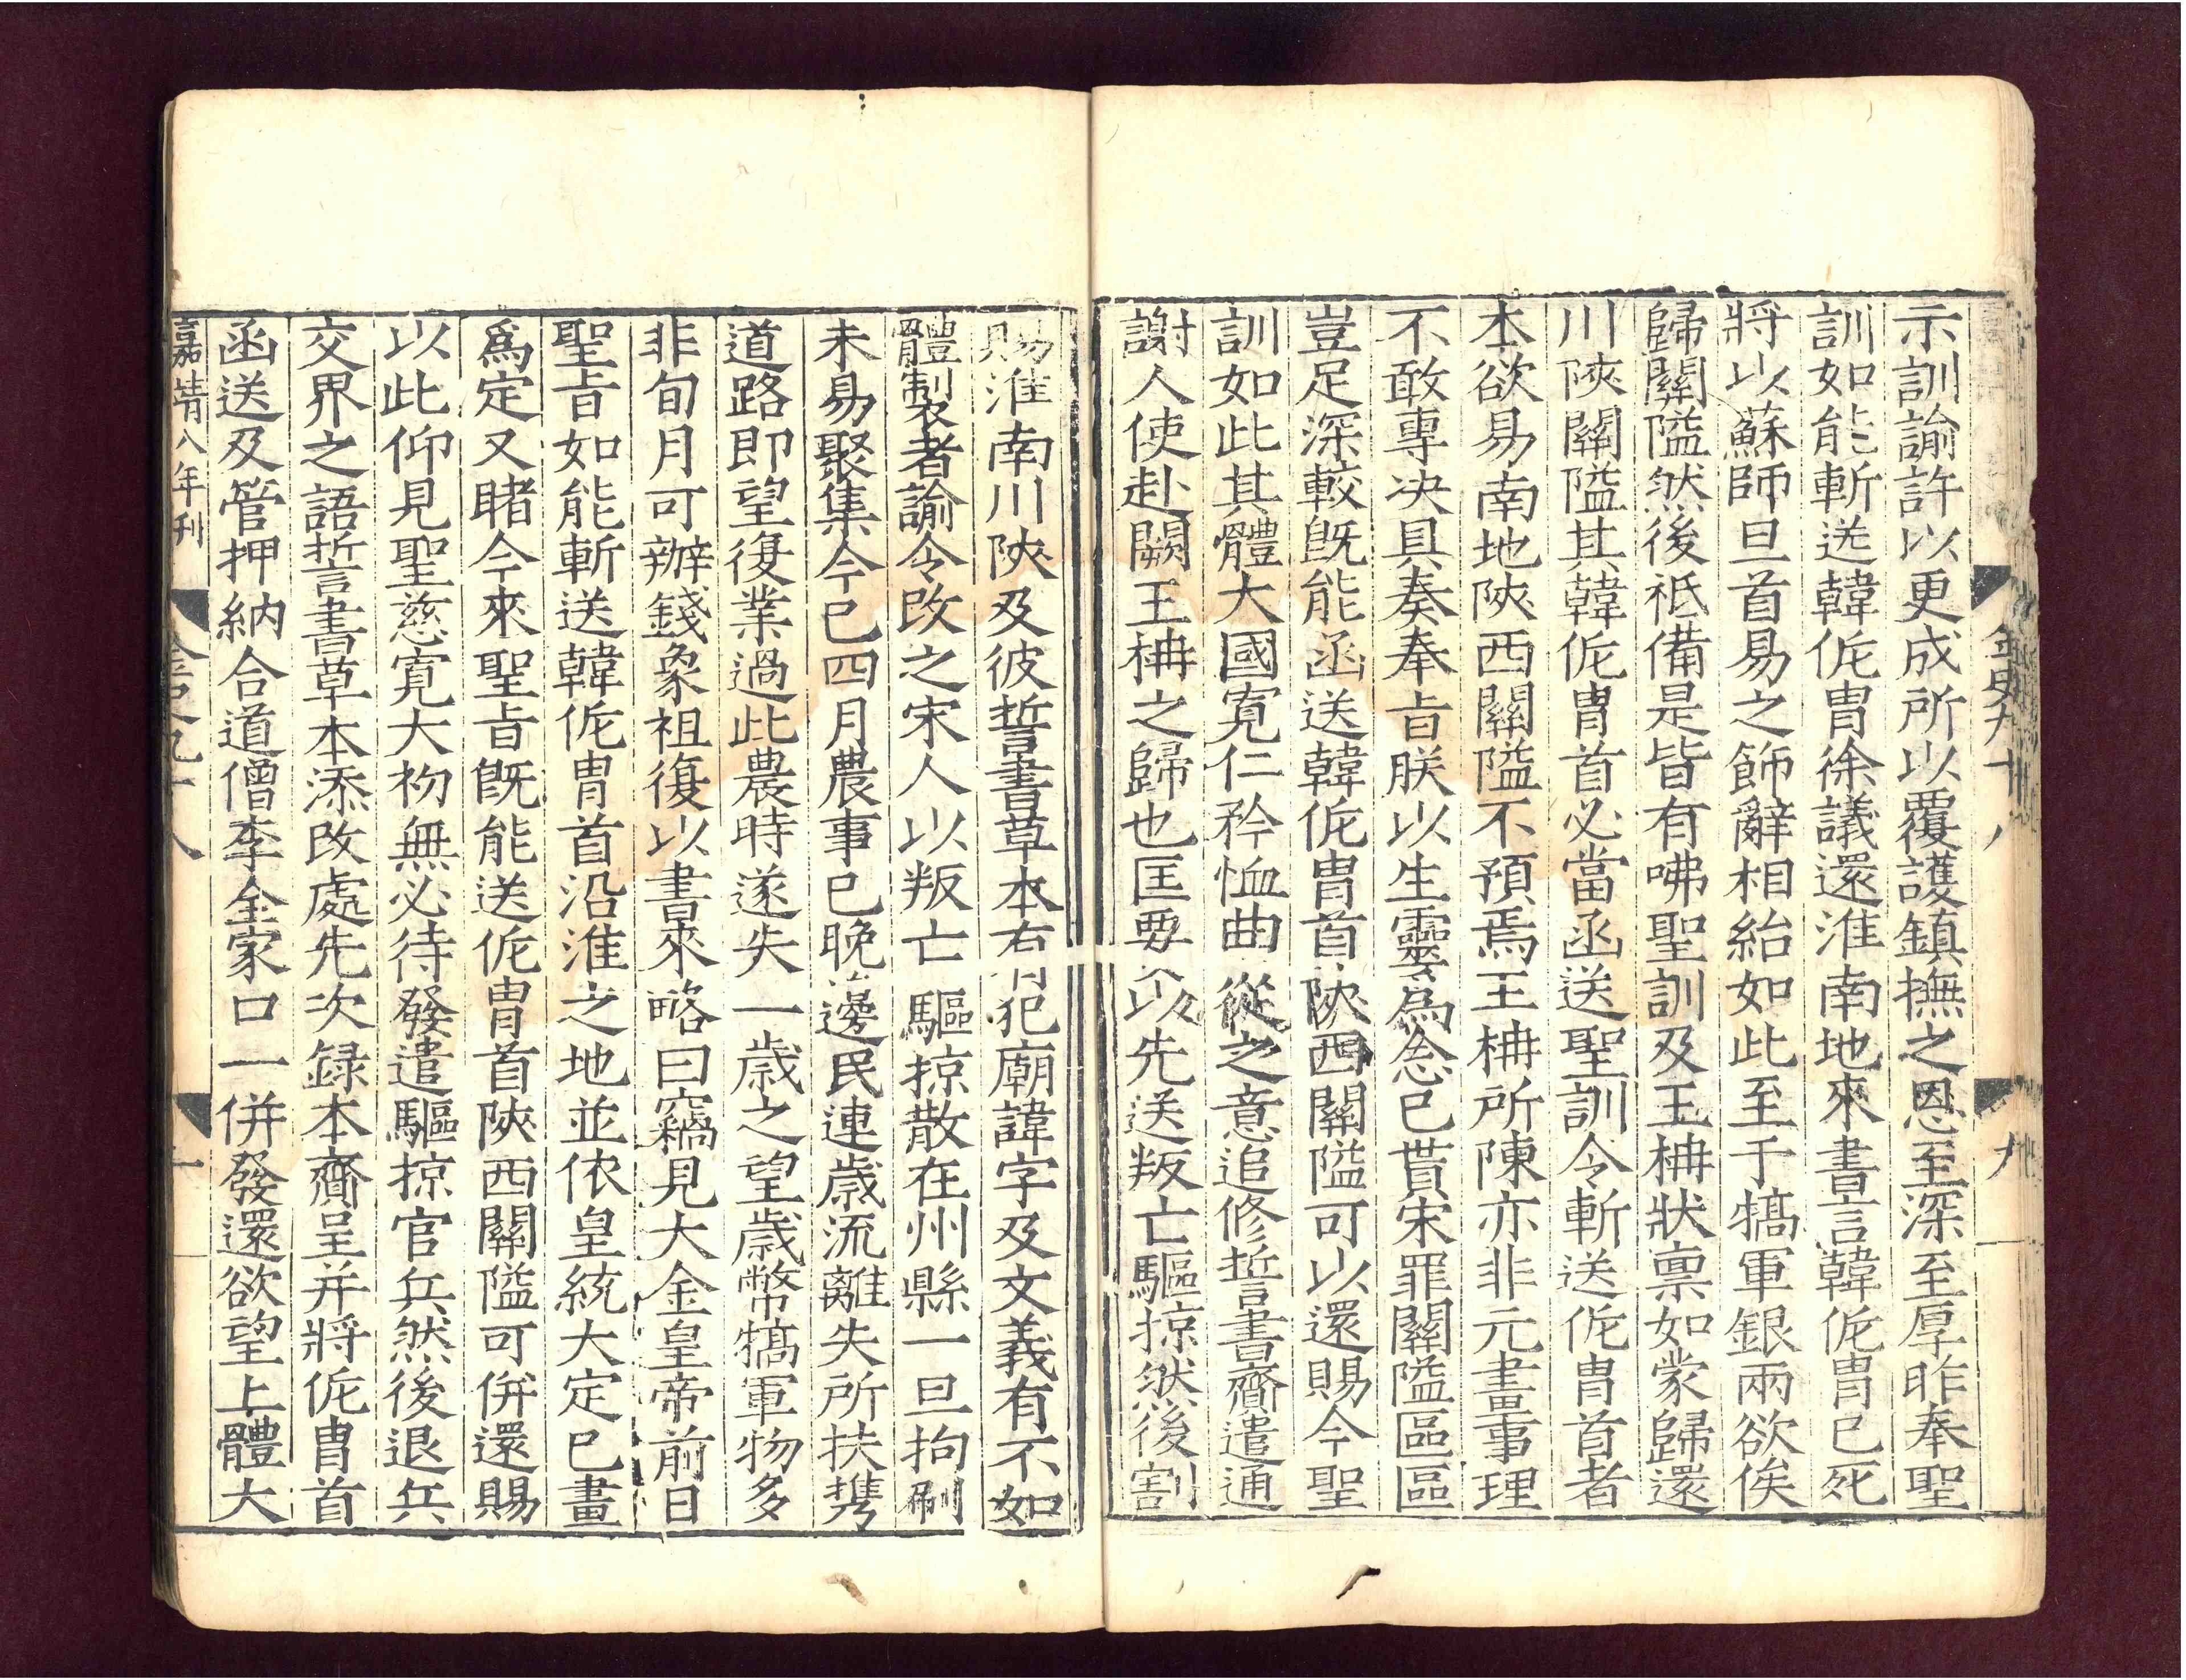 金史九十八
九
示訓諭許以更成所以覆護鎮撫之恩至深至厚昨奉聖
訓如能斬送韓侂冑徐議還淮南地來書言韓侂冑已死
將以蘇師旦首易之飾辭相紿如此至于犒軍銀兩欲俟
歸關隘然後祗備是皆有咈聖訓及王柟狀禀如蒙歸還
川陝關隘其韓侂冑首必當函送聖訓令斬送侂冑首者
本欲易南地陝西關隘不預焉王柟所陳亦非元畫事理
不敢專决具奏奉旨朕以生靈為念已貰宋罪關隘區區
豈足深較旣能函送韓侂冑首陝西關隘可以還賜今聖
訓如此其體大國寛仁矜恤曲從之意追修誓書齎遣通
謝人使赴闕王柟之歸也匡要以先送叛亡驅掠然後割
賜淮南川陝及彼誓書草本有犯廟諱字及文義有不如
體製者諭令改之宋人以叛亡驅掠散在州縣一旦拘刷
未易聚集今已四月農事已晚邊民連歳流離失所扶攜
道路即望復業過此農時遂失一歳之望歳幣犒軍物多
非旬月可辦錢象祖復以書來略曰竊見大金皇帝前日
聖旨如能斬送韓侂冑首沿淮之地並依皇統大定已畫
爲定又睹今來聖旨旣能送侂冑首陝西關隘可併還賜
以此仰見聖慈寛大初無必待發遣驅掠官兵然後退兵
交界之語誓書草本添改處先次録本齎呈并將侂冑首
函送及管押納合道僧李全家口一併發還欲望上體大
嘉靖八年刊